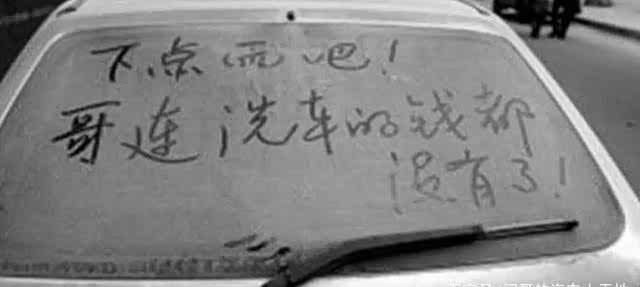 下点雨吧！
哥连洗车的钱都
没有了！